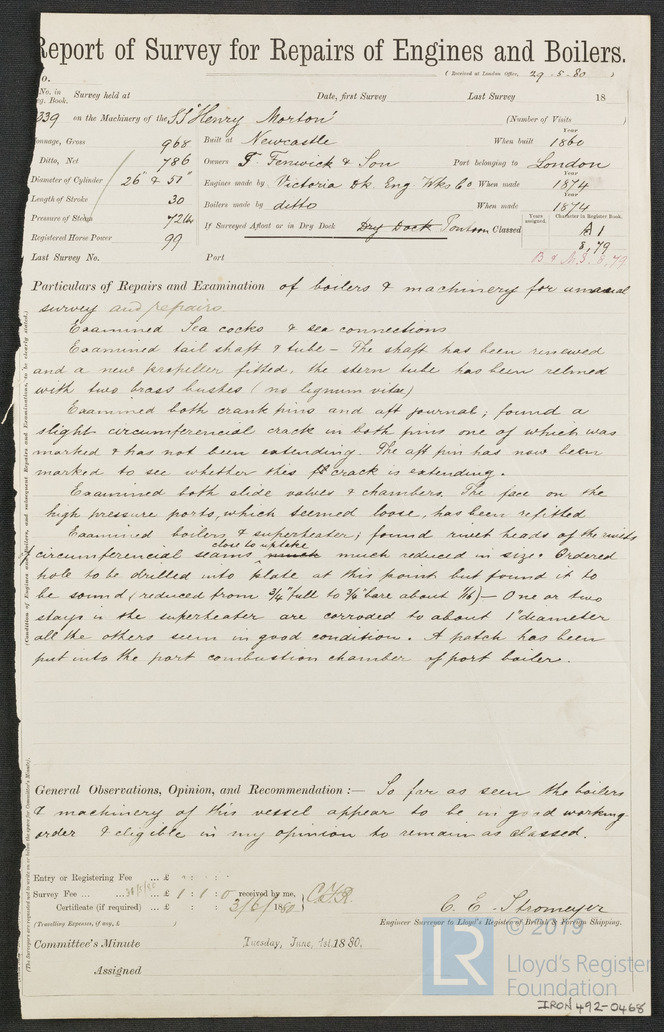 Report of Survey for Repairs of Engines and Boilers.
(Received at London Office, 29.5.80)
No. in Survey held at Date, first Survey Last Survey 18
339 on the Machinery of the SS "Henry Morton" (Number of Visits
Tonnage, Gross 968 Built at Newcastle When built 1860
Ditto, Net 786 Owners J. Fenwick & Son Port belonging to London
Diameter of Cylinder 26" & 51" Engines made by Victoria Dk. Eng. Wks Co When made 1874
Length of Stroke 30 Boilers made by ditto When made 1874
Pressure of Steam 72 lbs If Surveyed Afloat or in Dry Dock Dry Dock Pontoon Classed Years assigned. Character in Register Book. A1
Registered Horse Power 99 8,79
Last Survey No. Port B & M.S. 8,79
Particulars of Repairs and Examination of boilers & machinery for
survey and repairs.
Examined Sea cocks & sea connections
Examined tail shaft & tube - The shaft has been renewed
and a new propeller fitted, the stern tube has been relined
with two brass bushes (no lignum vitae)
Examined both crank pins and aft journal; found a
slight circumferencial crack in both pins one of which was
marked & has not been extending. The aft pin has now been
marked to see whether this crack is extending.
Examined both slide valves & chambers. The face on the
high pressure ports, which seemed loose, has been refitted
Examined boilers & superheater; found rivet heads of the
circumferencial seams close to uptake much reduced in size. Ordered
hole to be drilled into plate at this point but found it to
be sound (reduced from 3/4" full to 3/4" bare about 1/16) - One or two
stays in the superheater are corroded to about 1" diameter
all the others seem in good condition. A patch has been
put into the port combustion chamber of port boiler.
General Observations, Opinion, and Recommendation :— So far as seen the boilers
& machinery of this vessel appear to be in good working
order & eligible in my opinion to remain as classed.
Entry or Registering Fee ... £ : :
Survey Fee ... £ 1 : 1 : 0 received by me,
Certificate (if required) ... £ : : 3/6/1880
(Travelling Expenses, if any, £ )
C. E. Stromeyer
Engineer Surveyor to Lloyd's Register of British & Foreign Shipping.
Committee's Minute Tuesday, June, 1st. 1880.
Assigned
LR © 2019
Lloyd's Register
Foundation
IRON 492-0468